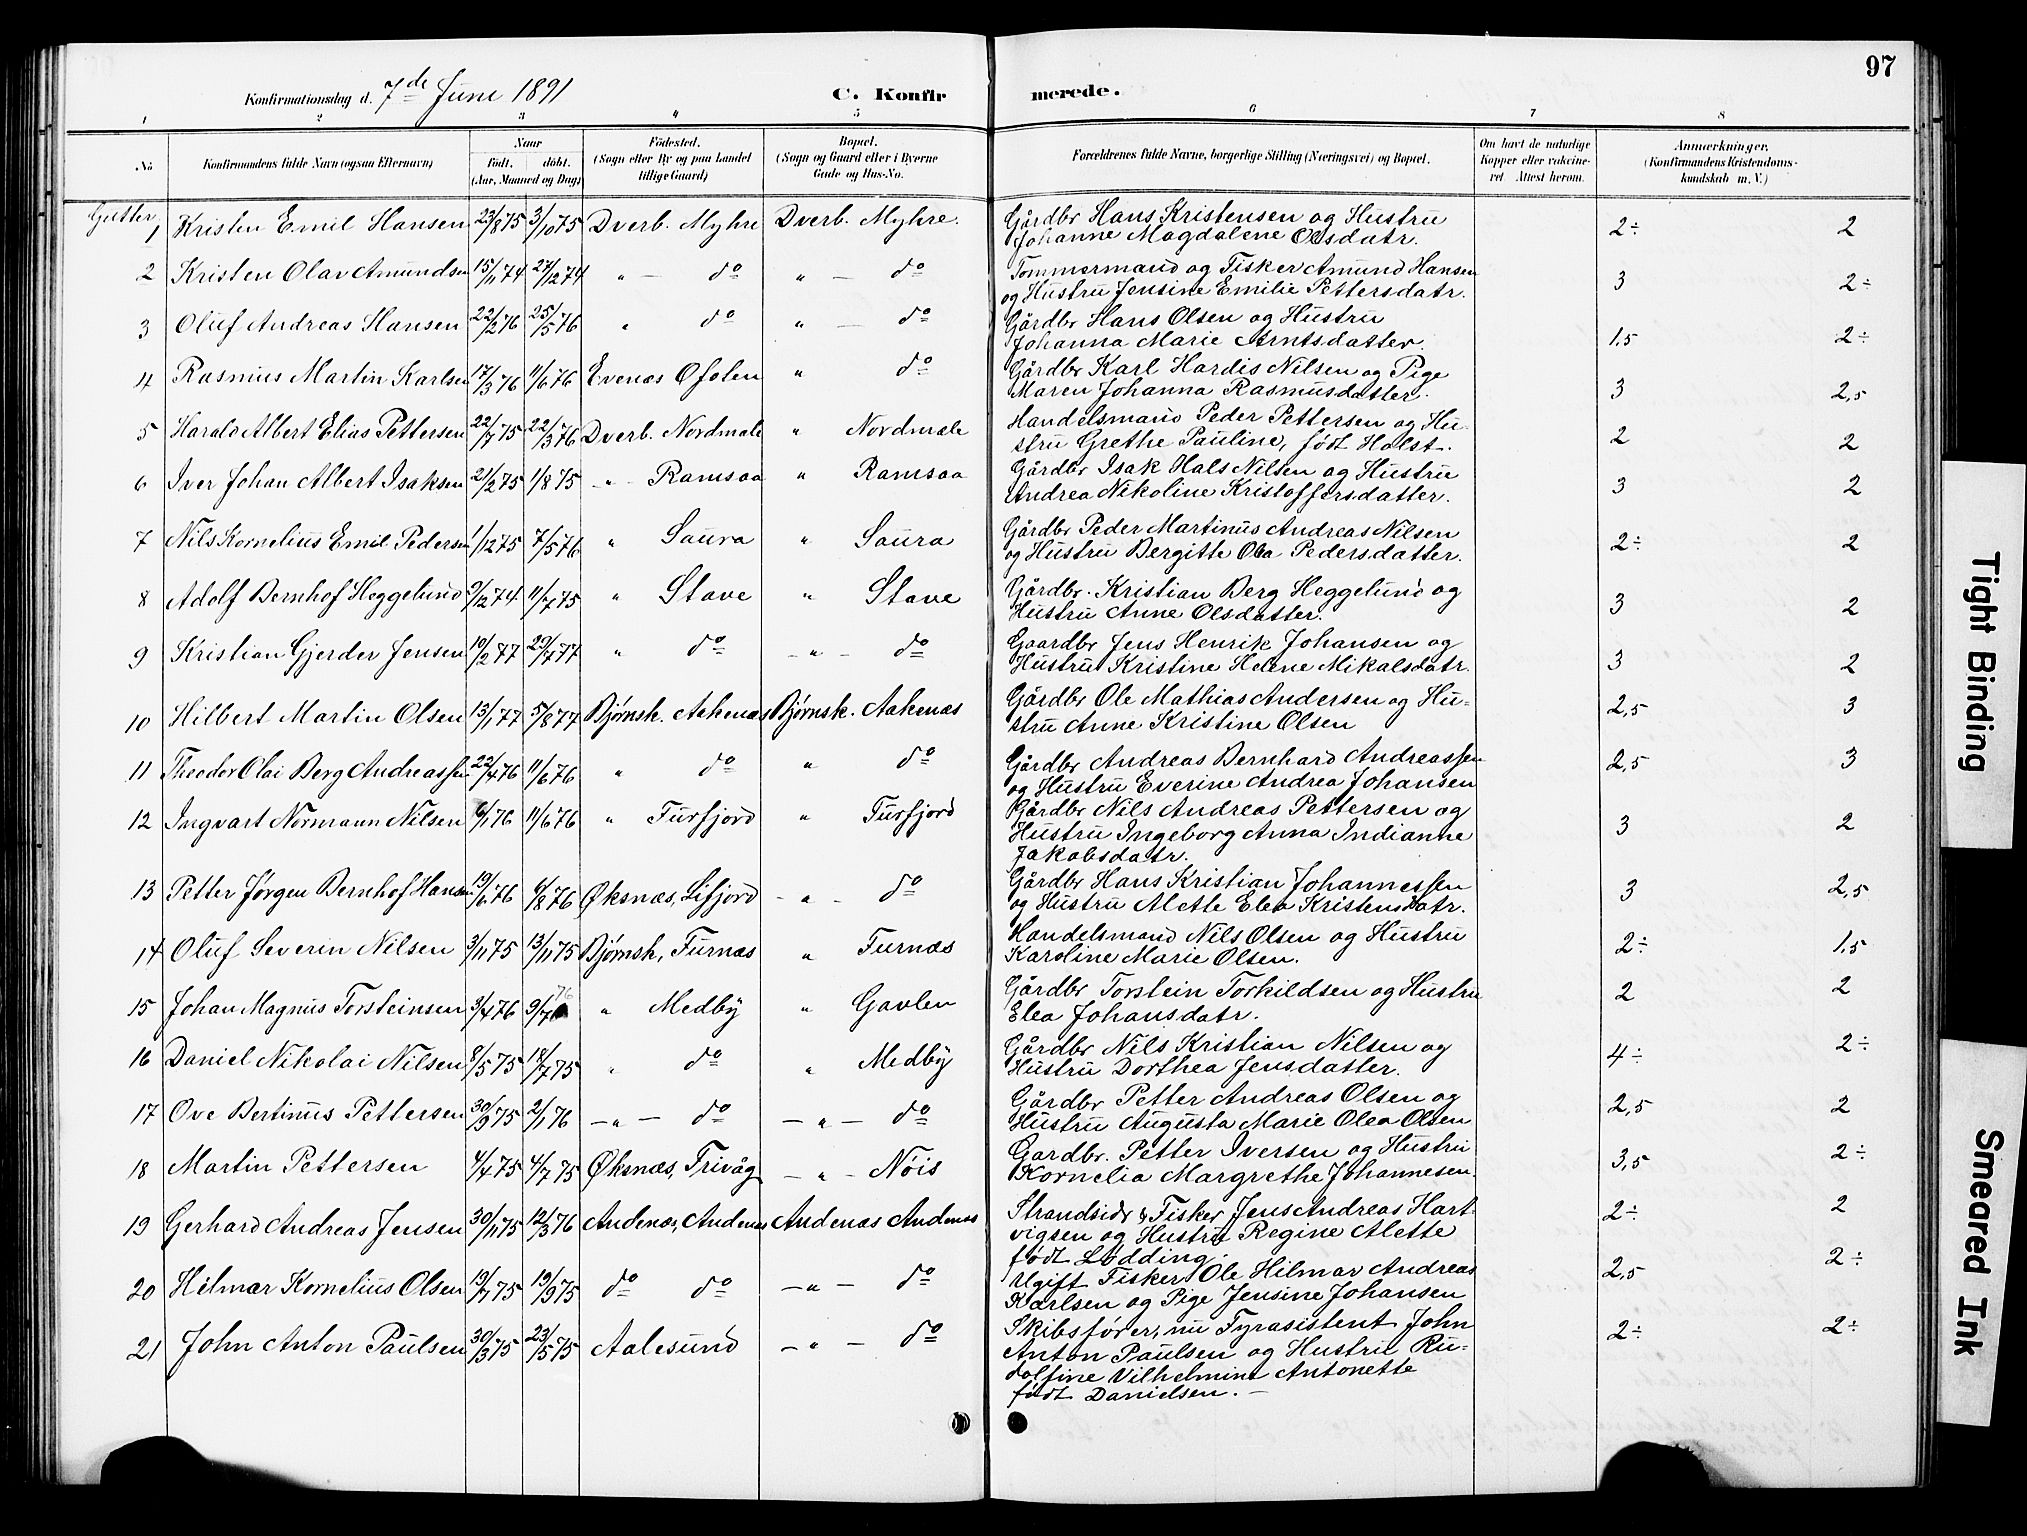 97
Konfirmationsdag d. 7de Juni 1891 C. Konfirmerede.
1 2 3 4 5 6 7 8
No
Konfirmandens fulde Navn (ogsaa Efternavn)
Naar
födt. döbt.
(Aar, Maaned og Dag)
Födested.
(Sogn eller By og paa Landet
tillige Gaard)
Bopæl.
(Sogn og Gaard eller i Byerne
Gade og Hus-No.
Forældrenes fulde Navne, borgerlige Stilling (Næringsvei) og Bopæl.
Om havt de naturlige
Kopper eller vaccineret
Attest herom.
Anmærkninger.
(Konfirmandens Kristendomskundskab
m. V.)
Gutter
1 Kristen Emil Hansen 23/8 75 3/10 75 Dverb. Myhre Dverb. Myhre. Gårdbr Hans Kristensen og Hustru 2÷ 2
Johanne Magdalene Olsdatr.
2 Kristen Olav Amundsen 15/11 74 27/12 74 " — do " — do Tømmermand og Fisker Amund Hansen 3 2÷
og Hustru Jensine Emilie Pettersdatr.
3 Oluf Andreas Hansen 22/2 76 25/5 76 " do " — do Gårdbr Hans Olsen og Hustru 1.5 2÷
Johanna Marie Arntsdatter.
4 Rasmus Martin Karlsen 17/3 76 11/6 76 Evenæs Ofoten " do Gårdbr Karl Hardis Nilsen og Pige 3 2,5
Maren Johanna Rasmusdatter.
5 Harald Albert Elias Pettersen 22/7 75 22/3 76 Dverb. Nordmale " Nordmæle Handelsmand Peder Pettersen og Hu- 2 2
stru Grethe Pauline, født Holst.
6 Iver Johan Albert Isaksen 21/2 75 1/8 75 - " - Ramsaa " Ramsaa Gårdbr Isak Hals Nilsen og Hustru 3 2
Andrea Nikoline Kristoffersdatter.
7 Nils Kornelius Emil Pedersen 1/12 75 7/5 76 " Saura " Saura Gårdbr Peder Martinus Andreas Nilsen 2÷ 2
og Hustru Bergitte Ola Pedersdatter.
8 Adolf Bernhof Heggelund 9/12 74 11/7 75 " Stave " Stave Gårdbr. Kristian Berg Heggelund og 3 2
Hustru Anne Olsdatter.
9 Kristian Gjerder Jensen 10/2 77 29/7 77 " do - " - do Gaardbr Jens Henrik Johansen og 3 2
Hustru Kristine Helene Mikalsdatr.
10 Hilbert Martin Olsen 13/1 77 5/8 74 Bjørnsk. Aakenæs Bjørnsk. Aakenæs Gårdbr Ole Mathias Andersen og Hu- 2,5 3
stru Anne Kristine Olsen
11 Theodor Olai Berg Andreassen 22/4 76 11/6 76 " do " do Gårdbr Andreas Bernhard Andreassen 2,5 3
og Hustru Everine Andrea Johansen
12 Ingvart Normann Nilsen 6/1 76 11/6 76 " Furfjord " Furfjord Gårdbr Nils Andreas Pettersen og 3 2
Hustru Ingeborg Anna Indianne
Jakobsdatr.
13 Petter Jørgen Bernhof Hansen 19/6 76 6/8 76 Øksnæs, Lifjord - " - do Gårdbr Hans Kristian Johannessen 3 2,5
og Hustru Alette Elea Kristensdatr.
14 Oluf Severin Nilsen 3/11 75 13/11 75 Bjørnsk, Furnæs " Furnæs Handelsmand Nils Olsen og Hustru 2÷ 1.5
Karoline Marie Olsen.
15 Johan Magnus Torsteinsen 3/4 76 9/7 76 " Medby " Gavlen Gårdbr Torstein Torkildsen og Hustru 2 2
Elea Johansdatr.
16 Daniel Nikolai Nilsen 8/5 75 18/7 75 " do " Medby Gårdbr Nils Kristian Nilsen og 4÷ 2÷
Hustru Dorthea Jensdatter.
17 Ove Bertinus Pettersen 30/9 75 2/1 76 — " — do — " — do Gårdbr Petter Andreas Olsen og 2,5 2
Hustru Augusta Marie Olea Olsen
18 Martin Pettersen 4/4 75 4/7 75 Øksnæs, Trivåg — " - Nöis Gardbr. Petter Iversen og Hustru 3,5 2÷
Kornelia Margrethe Johannesen.
19 Gerhard Andreas Jensen 30/11 75 12/3 76 Andenæs, Andenæs Andenæs Andenæs Strandsidr & Fisker Jens Andreas Hart- 2÷ 2
vigsen og Hustru Regine Alette
født Lødding.
20 Hilmar Kornelius Olsen 19/7 75 19/9 75 do do — " — do Ugift Fisker Ole Hilmar Andreas 2,5 2÷
Karlsen og Pige Jensine Johansen
21 John Anton Paulsen 30/3 75 23/5 75 Aalesund — " — do Skibsfører, nu Fyrasistent John 2÷ 2÷
Anton Paulsen og Hustru Ru-
dolfine Vilhelmine Antonette
født Danielsen. —
Tight Binding
Smeared Ink